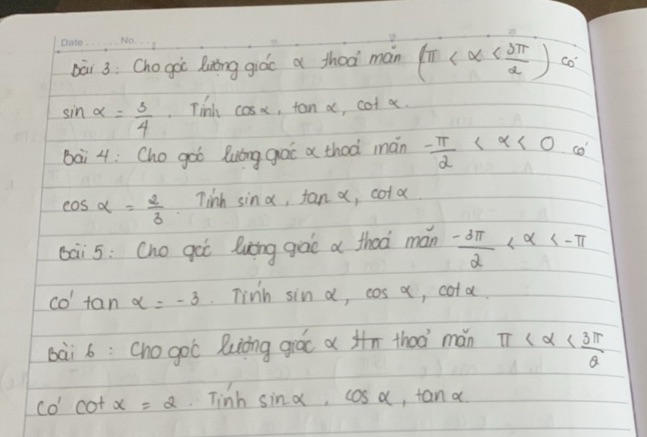 Date ...... No. ...
Bài 3: Cho góc lượng giác α thoả mãn (π < α < 3π/2) có
sin α = 3/4. Tính cos α, tan α, cot α.
Bài 4: Cho góc lượng giác α thoả mãn -π/2 < α < 0 có
cos α = 2/3. Tính sin α, tan α, cot α
Bài 5: Cho góc lượng giác α thoả mãn -3π/2 < α < -π
có tan α = -3. Tính sin α, cos α, cot α.
Bài 6: Cho góc lượng giác α thoả mãn π < α < 3π/2
có cot α = 2. Tính sin α, cos α, tan α.